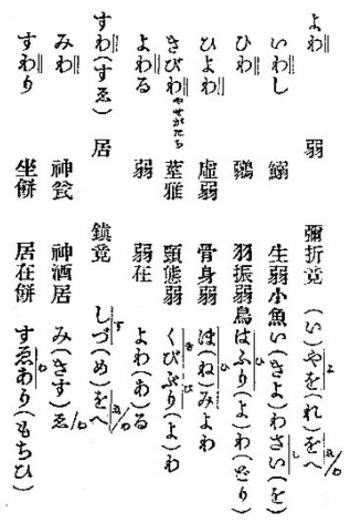 よわ 弱 彌折竟 (い)やを(れ)をへ
いわし 鰯 生弱小魚 い(きよ)わさい(を)
ひわ 鷚 羽振弱鳥 はふり(よ)わ(どり)
ひよわ 虚弱 骨身弱 ほ(ね)みよわ
きびわ やせがたち 莖雅 頸態弱 くびぶり(よ)わ
よわる 弱 弱在 よわ(あ)る
すわ(すゑ) 居 鎮竟 しづ(め)をへ
みわ 神瓮 神酒居 み(きす)ゑ
すわり 坐餅 居在餅 すゑあり(もちひ)